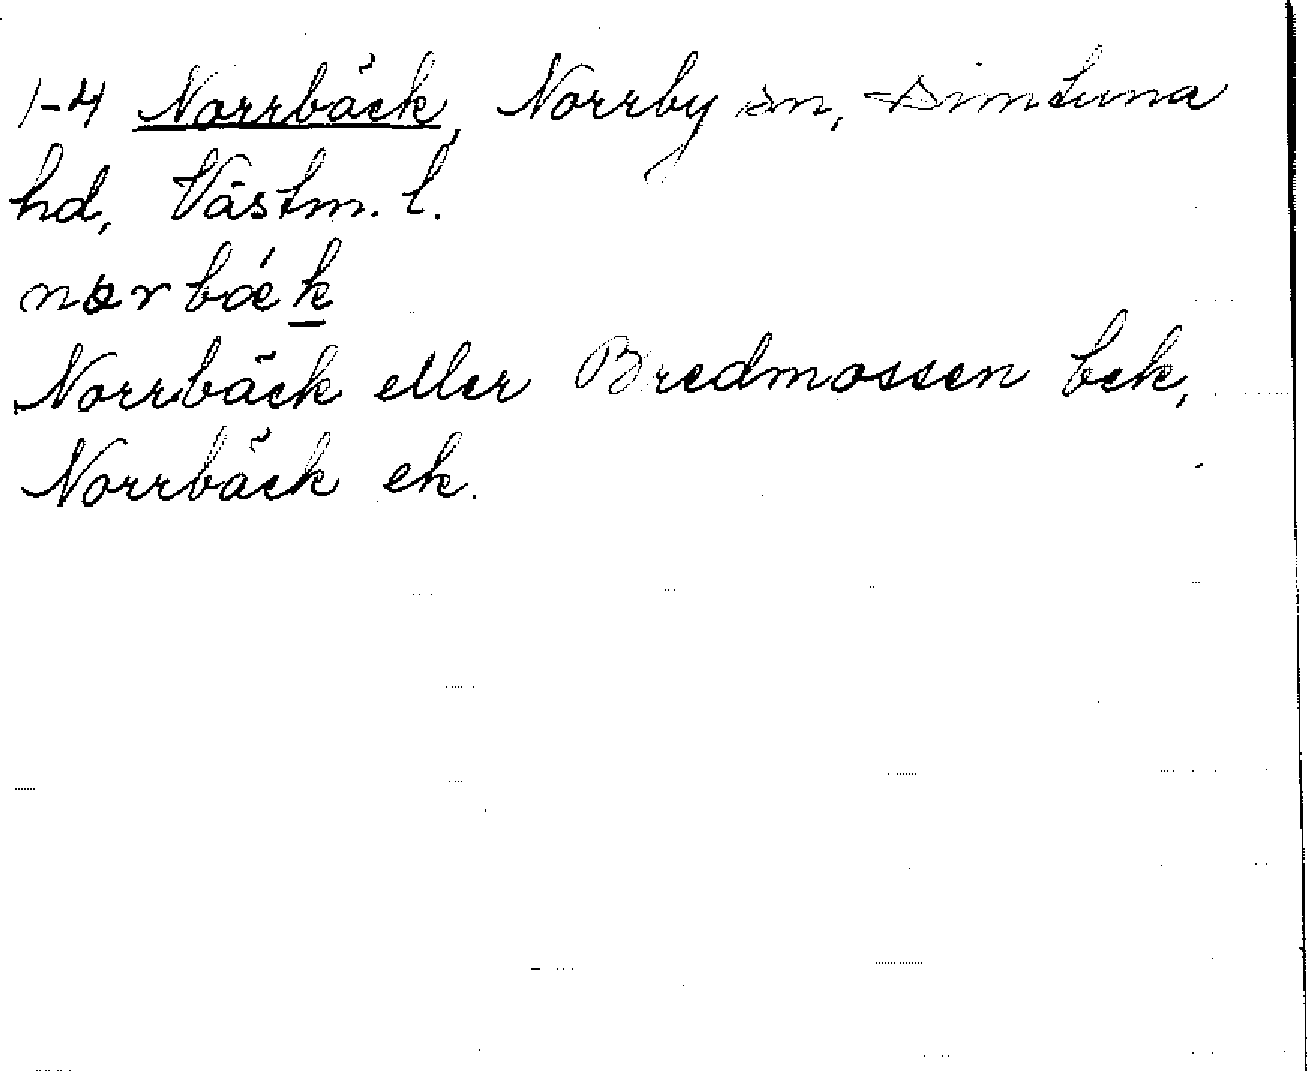 1-4 Norrbäck, Norrby sn, Simtuna
hd, Västm. l.
norbæ´k
Norrbäck eller Bredmossen bek,
Norrbäck ek.